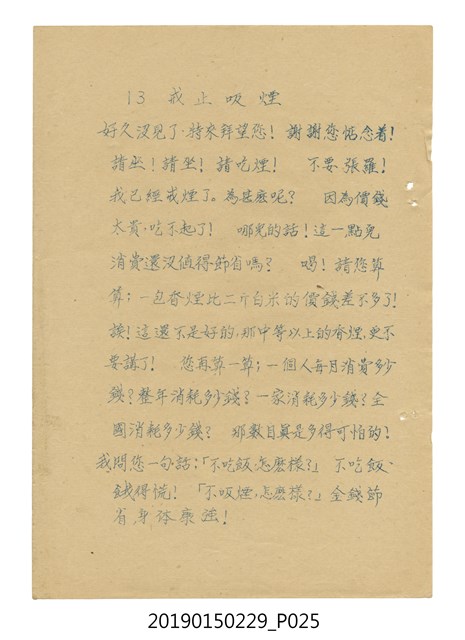 13 戒止吸煙
好久沒見了,特來拜望您! 謝謝您惦念着!
請坐!請坐!請吃煙! 不要張羅!
我已經戒煙了。為甚麽呢? 因為價錢
太貴,吃不起了! 哪兒的話!這一點兒
消費還沒值得節省嗎? 喝!請您算
算;一包香煙比二斤白米的價錢差不多了!
挨!這還不是好的,那中等以上的香煙,更不
要講了! 您再算一算;一個人每月消費多少
錢?整年消耗多少錢?一家消耗多少錢?全
國消耗多少錢? 那數目眞是多得可怕的!
我問您一句話:「不吃飯,怎麽樣?」 不吃飯,
餓得慌! 「不吸煙,怎麽樣?」金錢節
省,身体康強!
20190150229_P025